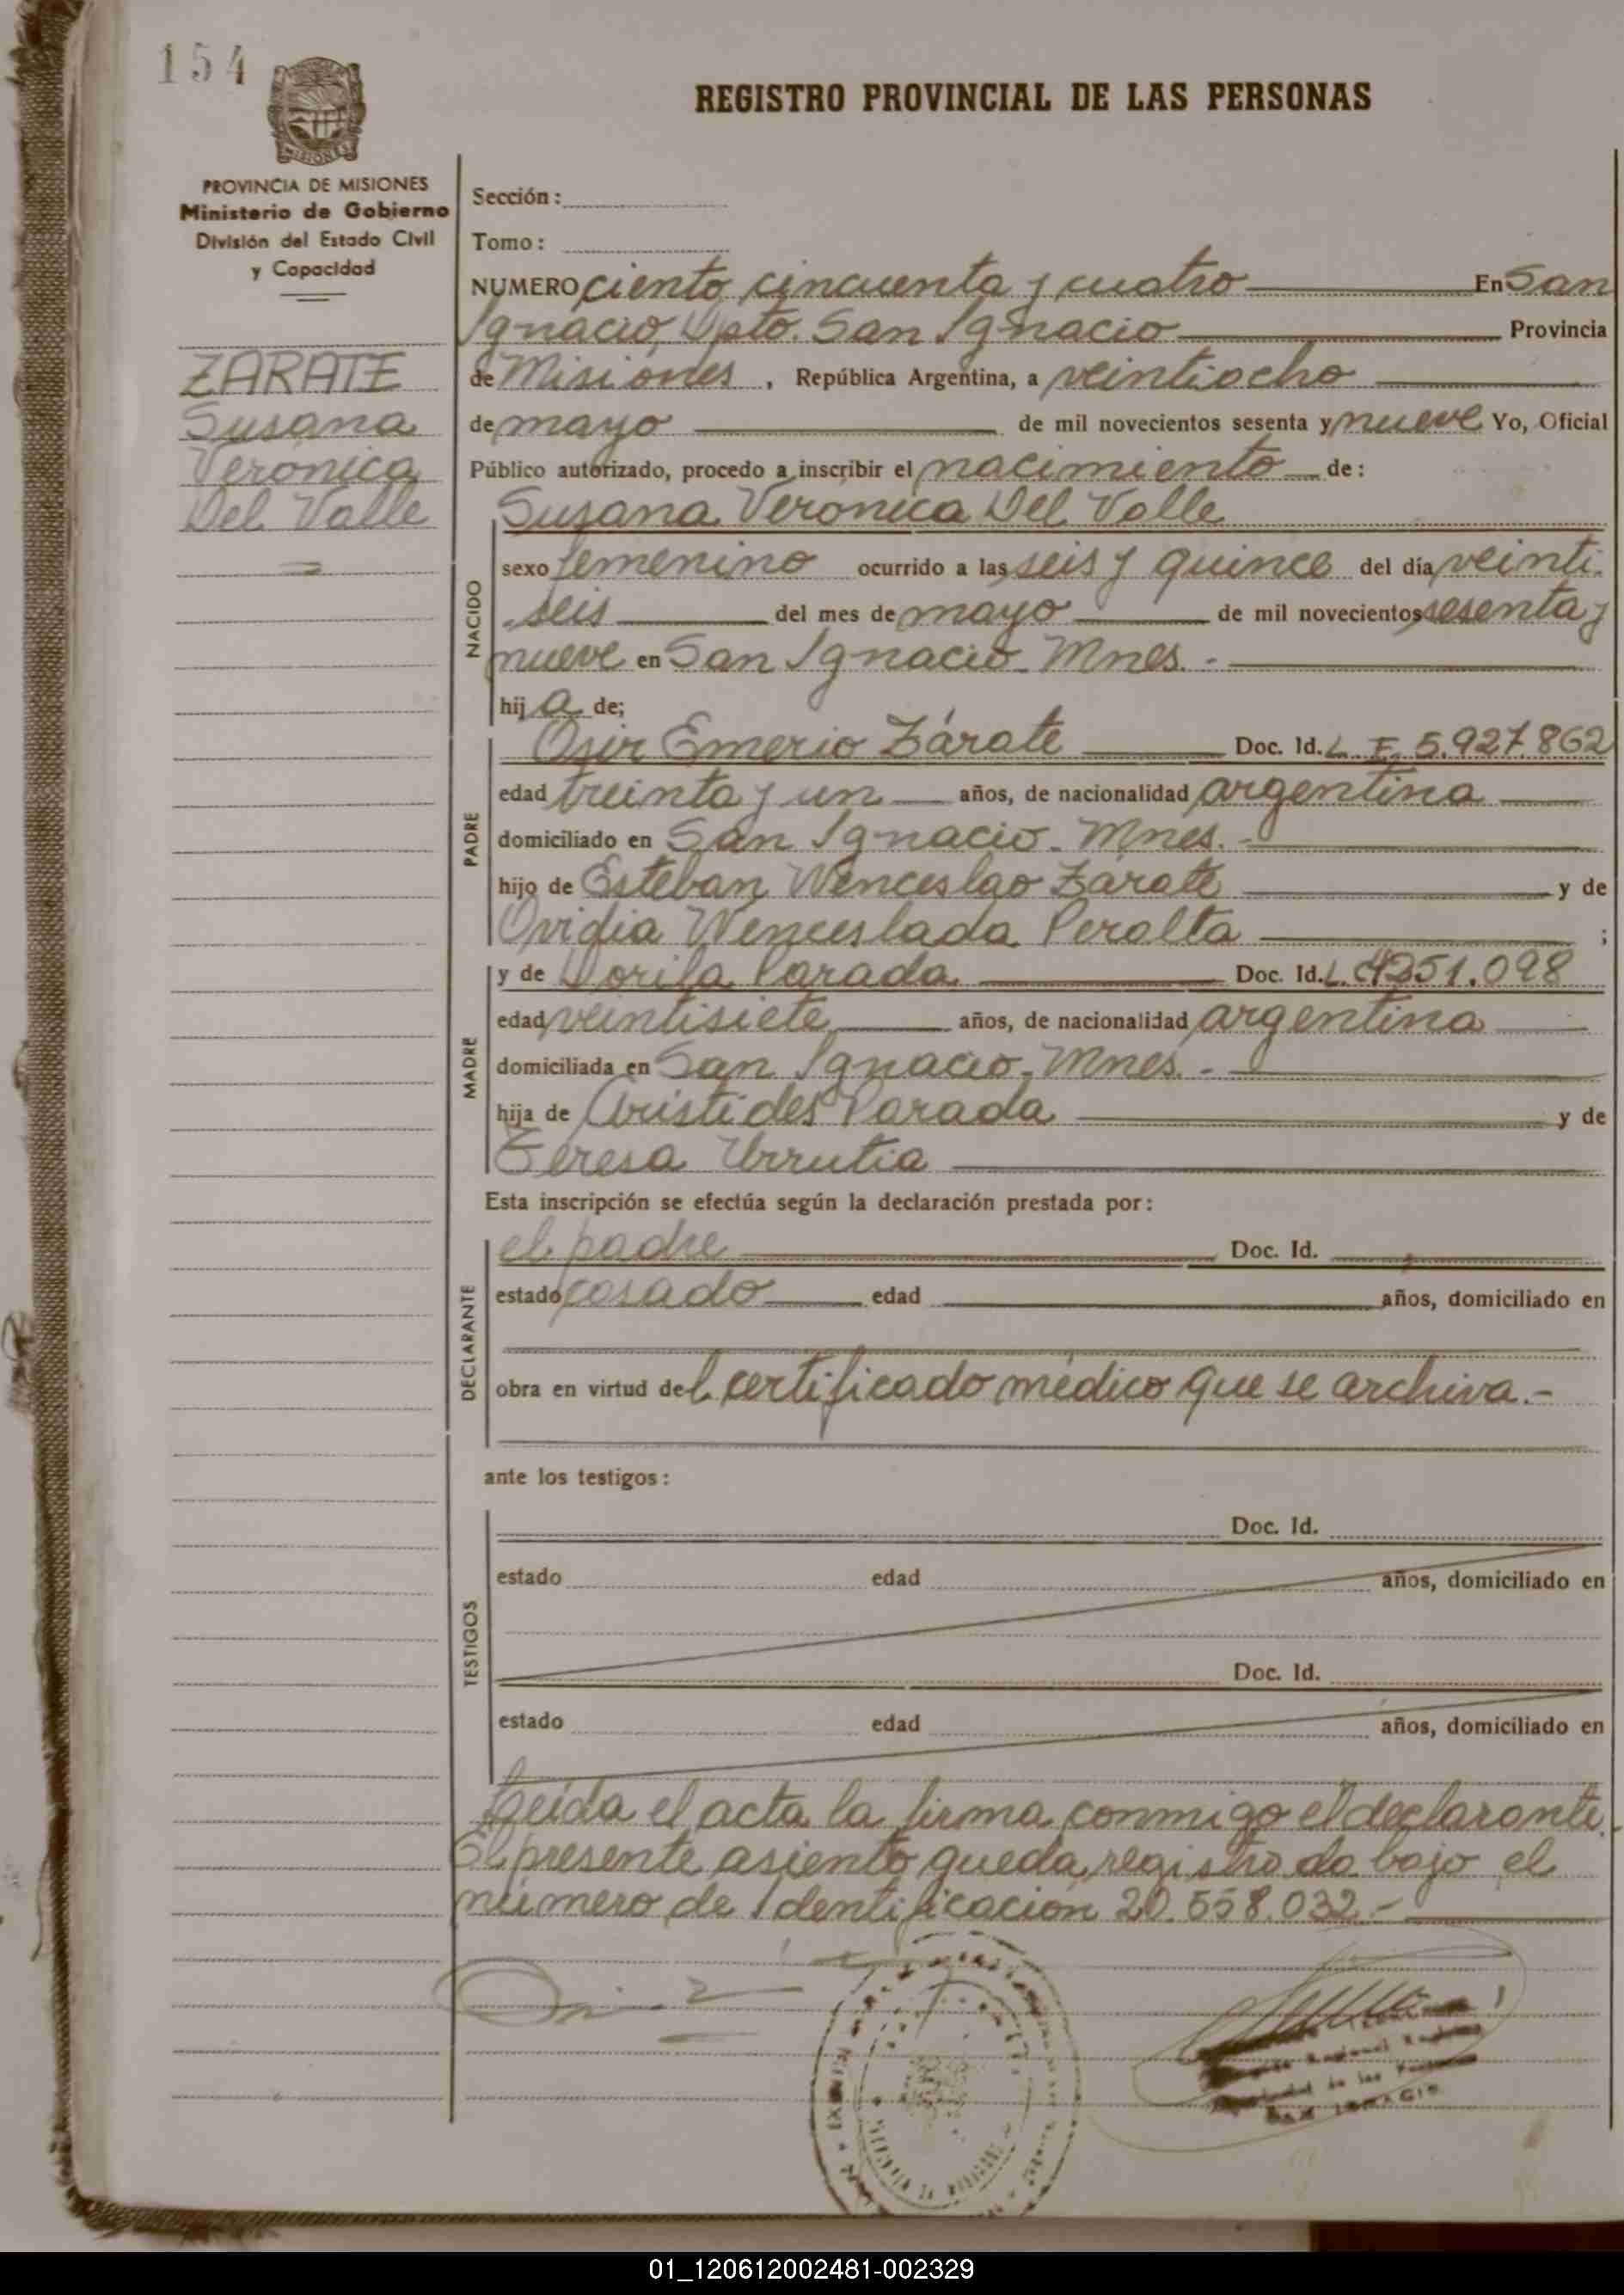 154
REGISTRO PROVINCIAL DE LAS PERSONAS
MISIONES
PROVINCIA DE MISIONES
Ministerio de Gobierno
División del Estado Civil
y Capacidad
ZARATE
Susana
Verónica
Del Valle
Sección:
Tomo:
NUMERO ciento cincuenta y cuatro En San
Ignacio, Dpto. San Ignacio Provincia
de Misiones, República Argentina, a veintiocho
de mayo de mil novecientos sesenta y nueve Yo, Oficial
Público autorizado, procedo a inscribir el nacimiento de:
Susana Verónica Del Valle
NACIDO
sexo femenino ocurrido a las seis y quince del día veinti-
seis del mes de mayo de mil novecientos sesenta y
nueve en San Ignacio - Mnes. -
hija de;
PADRE
Osir Emerio Zárate Doc. Id. L. E. 5.927.862
edad treinta y un años, de nacionalidad argentina
domiciliado en San Ignacio - Mnes. -
hijo de Esteban Wenceslao Zárate y de
Ovidia Wenceslada Peralta ;
MADRE
y de Dorila Parada Doc. Id. L. C. 4251.098
edad veintisiete años, de nacionalidad argentina
domiciliada en San Ignacio - Mnes. -
hija de Aristides Parada y de
Teresa Urrutia
Esta inscripción se efectúa según la declaración prestada por:
DECLARANTE
el padre Doc. Id.
estado casado edad años, domiciliado en
obra en virtud del certificado médico que se archiva.-
ante los testigos:
TESTIGOS
Doc. Id.
estado edad años, domiciliado en
Doc. Id.
estado edad años, domiciliado en
Leída el acta la firma conmigo el declarante.
El presente asiento queda registrado bajo el
número de Identificación 20.558.032.-
SAN IGNACIO
01_120612002481-002329